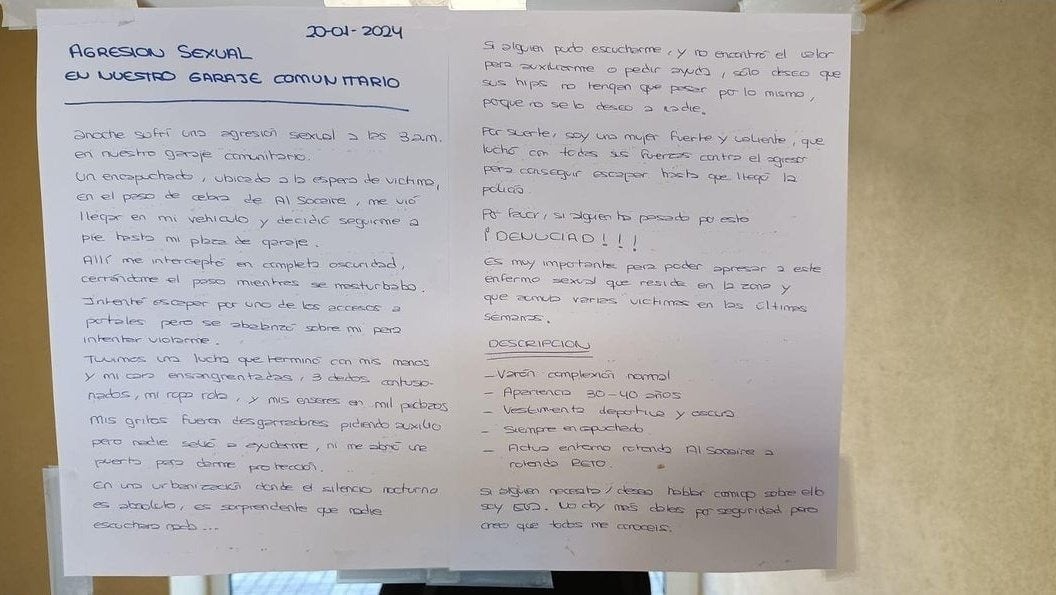 20-01-2024
AGRESION SEXUAL
EN NUESTRO GARAJE COMUNITARIO
anoche sufrí una agresión sexual a las 3 a.m.
en nuestro garaje comunitario.
Un encapuchado, ubicado a la espera de victima,
en el paso de cebra de Al Socaire, me vió
llegar en mi vehículo y decidió seguirme a
pie hasta mi plaza de garaje.
Allí me interceptó en completa oscuridad,
cerrándome el paso mientras se masturbaba.
Intenté escapar por uno de los accesos a
portales pero se abalanzó sobre mi para
intentar violarme.
Tuvimos una lucha que terminó con mis manos
y mi cara ensangrentadas, 3 dedos contusio-
nados, mi ropa rota, y mis enseres en mil pedazos
Mis gritos fueron desgarradores pidiendo auxilio
pero nadie salió a ayudarme, ni me abrió una
puerta para darme protección.
En una urbanización donde el silencio nocturno
es absoluto, es sorprendente que nadie
escuchara nada...
Si alguien pudo escucharme, y no encontró el valor
para auxiliarme o pedir ayuda, sólo deseo que
sus hijas no tengan que pasar por lo mismo,
porque no se lo deseo a nadie.
Por suerte, soy una mujer fuerte y valiente, que
luchó con todas sus fuerzas contra el agresor
para conseguir escapar hasta que llegó la
policía.
Por favor, si alguien ha pasado por esto
¡DENUCIAD!!!
Es muy importante para poder apresar a este
enfermo sexual que reside en la zona y
que acumula varias victimas en las últimas
semanas.
DESCRIPCION
- Varón complexión normal
- Apariencia 30-40 años
- Vestimenta deportiva y oscura
- Siempre encapuchado
- Actua entorno rotonda Al Socaire a
rotonda RETO.
Si alguien necesita/desea hablar conmigo sobre ello
soy EVA. No doy mas datos por seguridad pero
creo que todos me conoceis.